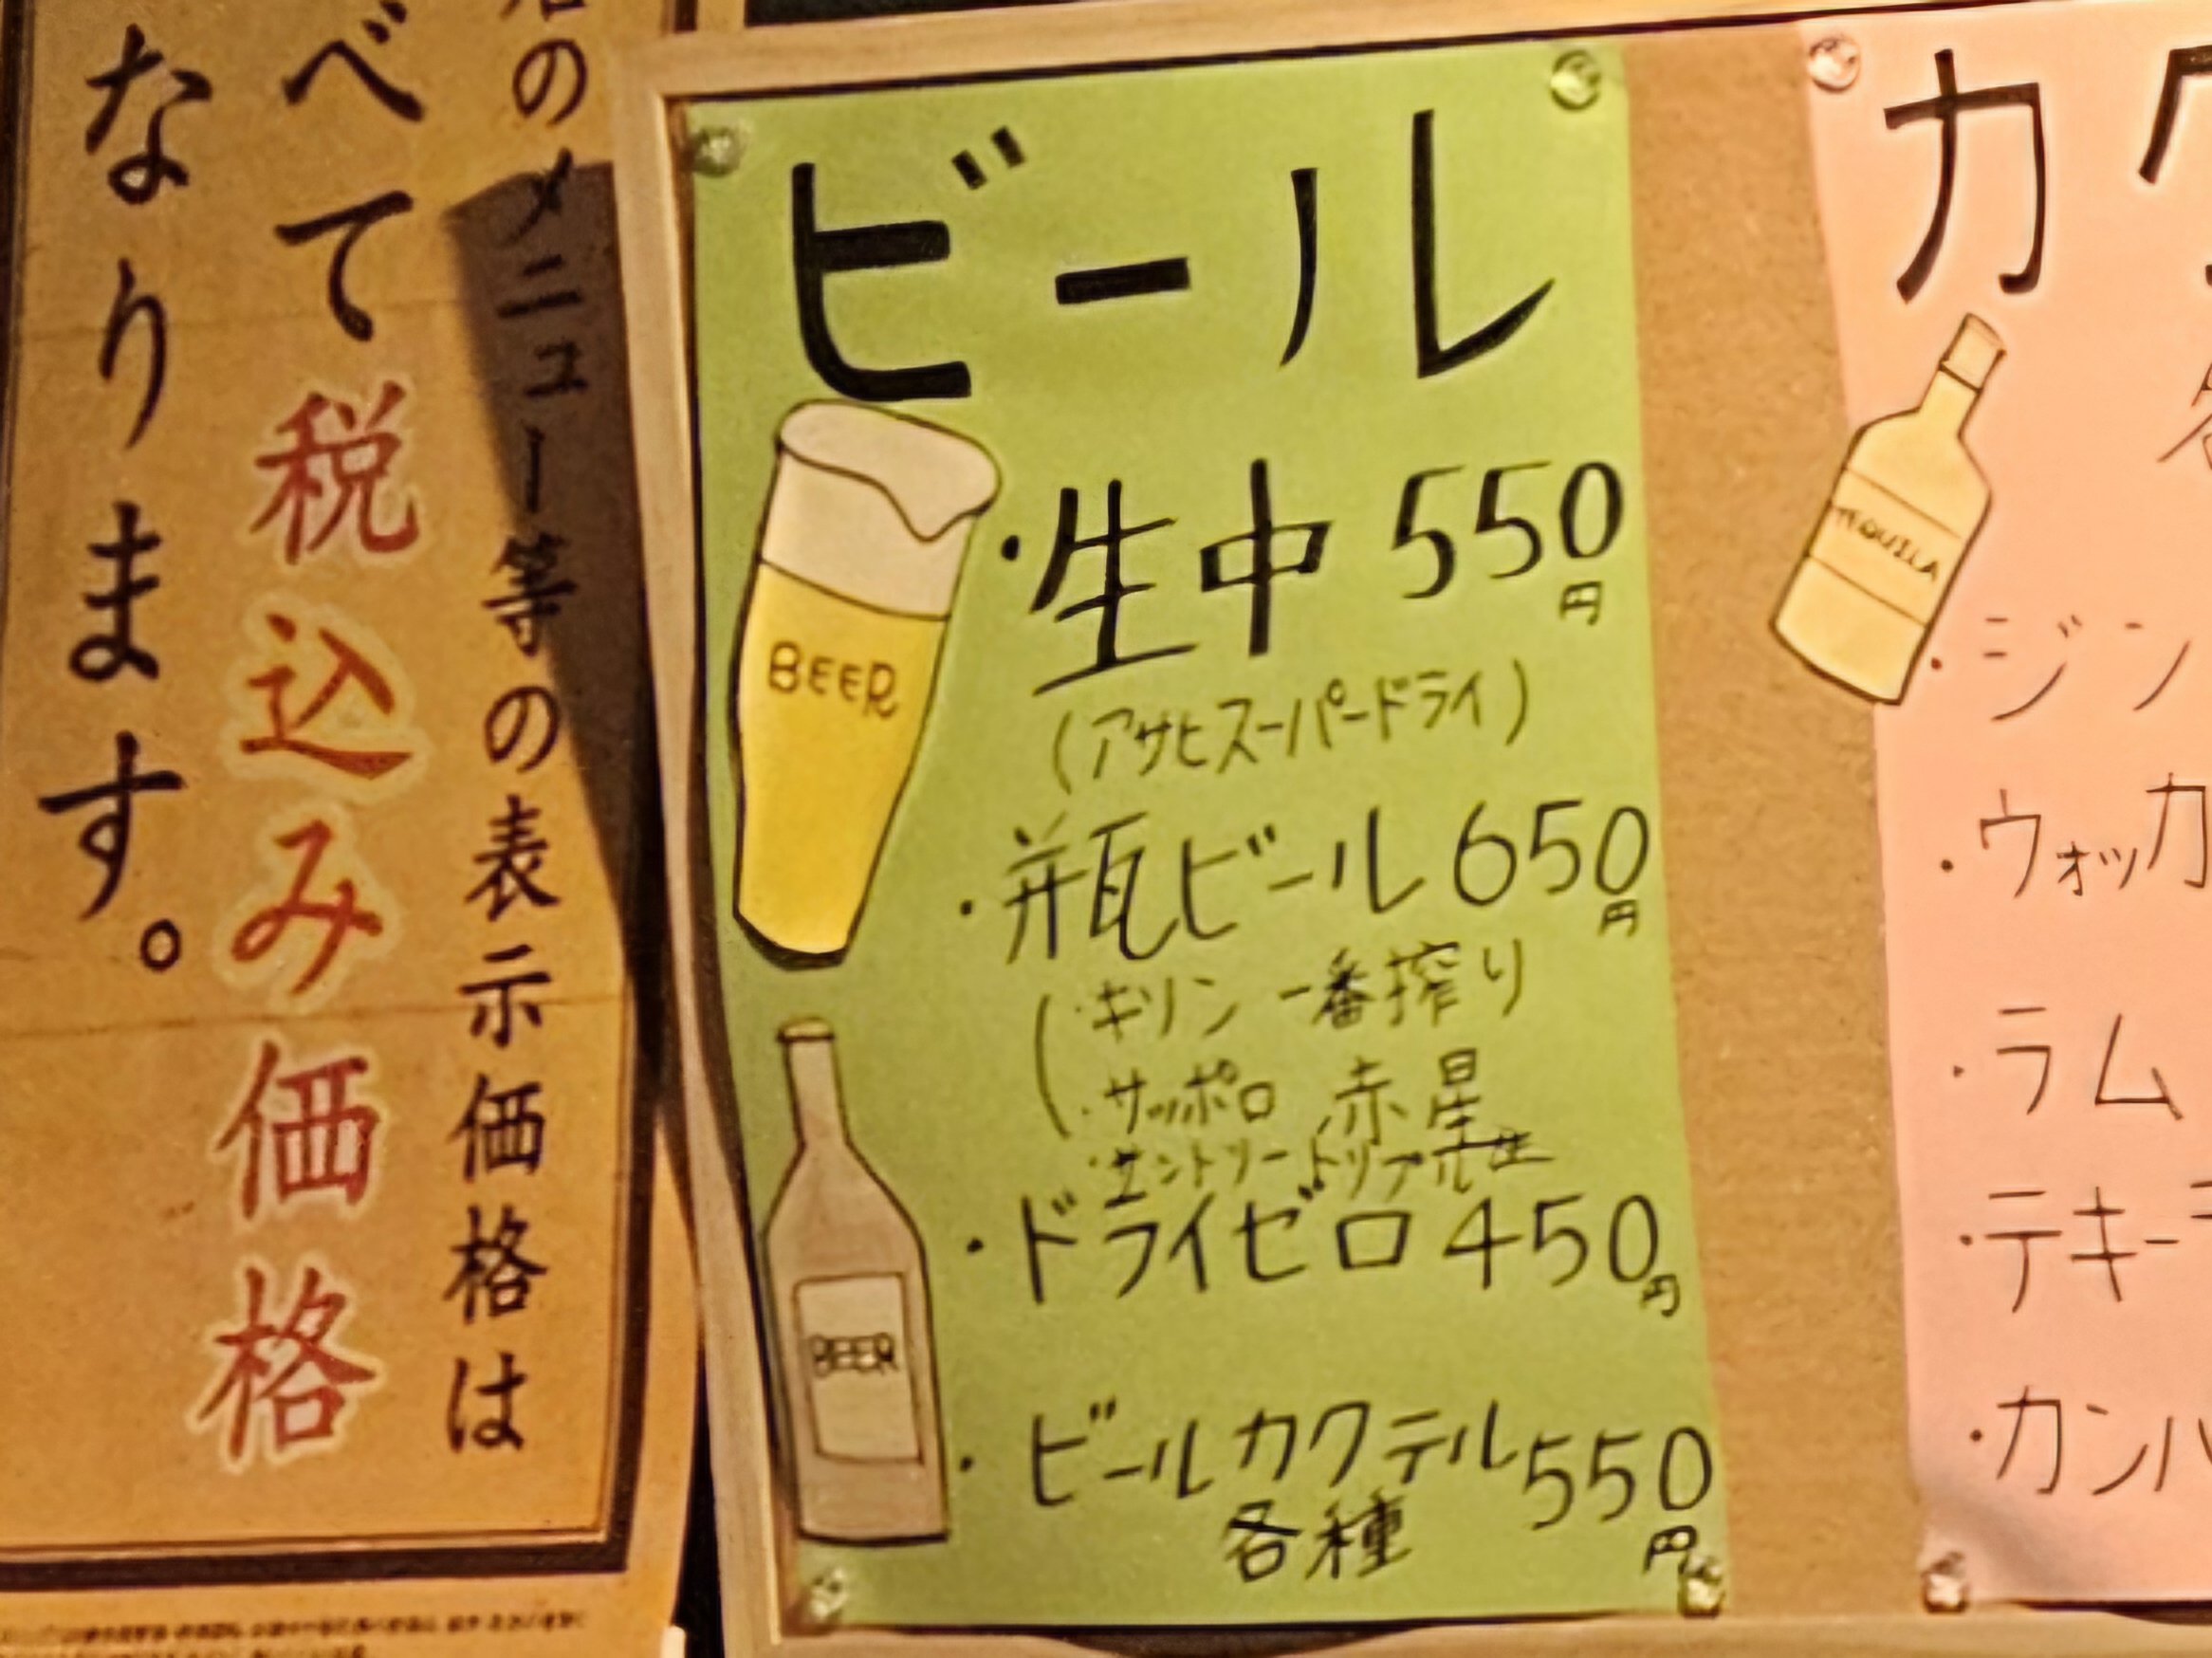 のメニュー等の表示価格は
べて税込み価格
なります。
ビール
BEER
・生中 550円
(アサヒスーパードライ)
・瓶ビール 650円
(・キリン 一番搾り
・サッポロ 赤星
・サントリー トリプル生
・ドライゼロ 450円
BEER
・ビールカクテル 550円
各種
カク
TEQUILA
・ジン
・ウォッカ
・ラム
・テキー
・カンパ